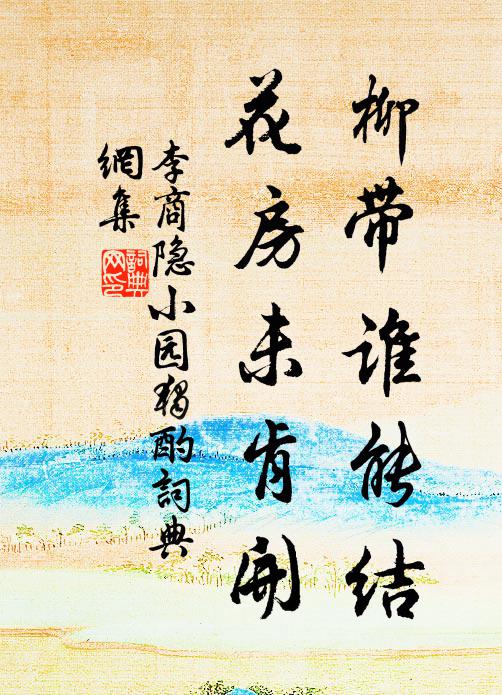 柳帶谁能结
花房未肯開
李商隐小园獨酌詞典
網集
詞典
网印